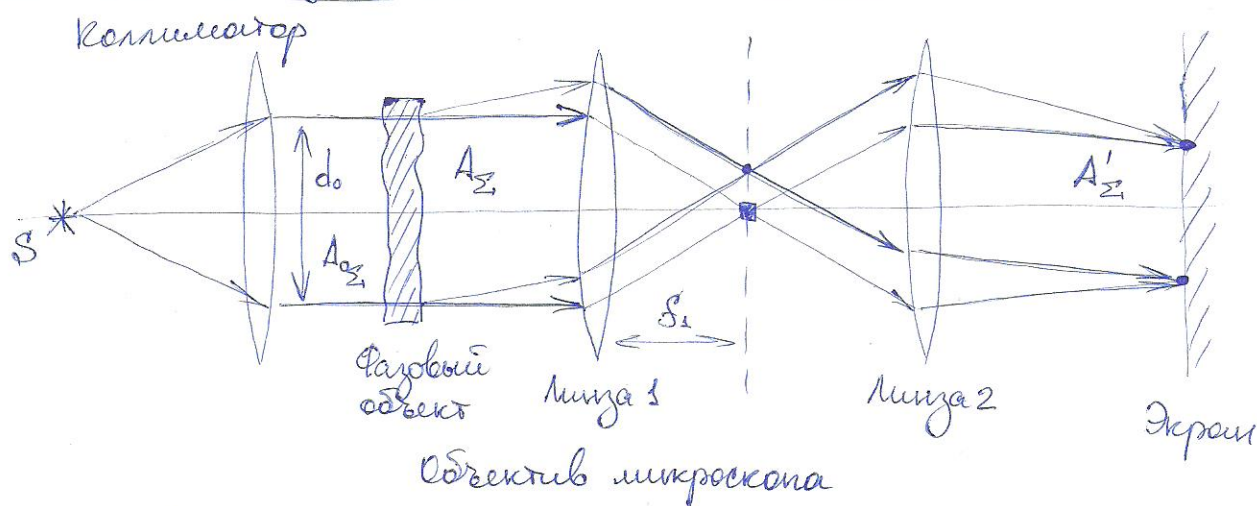 Коллиматор
S
d₀
A₀Σ
AΣ
A'Σ
f₁
Фазовый
объект
Линза 1
Линза 2
Экран
Объектив микроскопа